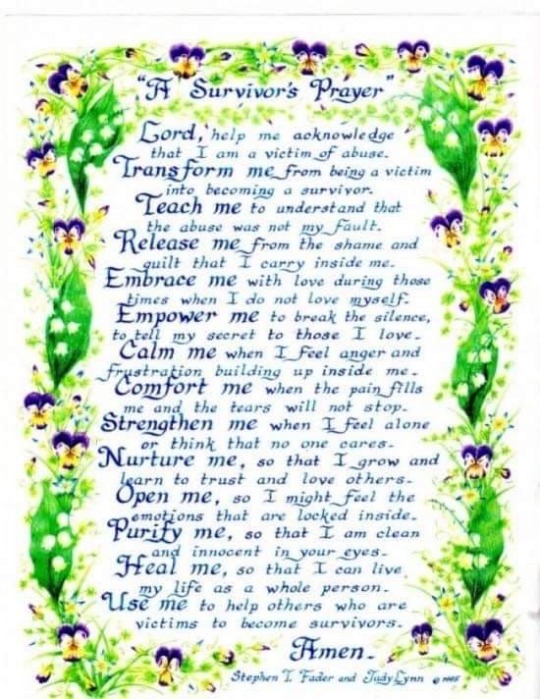 "A Survivor's Prayer"
Lord, help me acknowledge
that I am a victim of abuse.
Transform me from being a victim
into becoming a survivor.
Teach me to understand that
the abuse was not my fault.
Release me from the shame and
guilt that I carry inside me.
Embrace me with love during those
times when I do not love myself.
Empower me to break the silence,
to tell my secret to those I love.
Calm me when I feel anger and
frustration building up inside me.
Comfort me when the pain fills
me and the tears will not stop.
Strengthen me when I feel alone
or think that no one cares.
Nurture me, so that I grow and
learn to trust and love others.
Open me, so I might feel the
emotions that are locked inside.
Purify me, so that I am clean
and innocent in your eyes.
Heal me, so that I can live
my life as a whole person.
Use me to help others who are
victims to become survivors.
Amen.
Stephen T. Fader and Judy Lynn ©